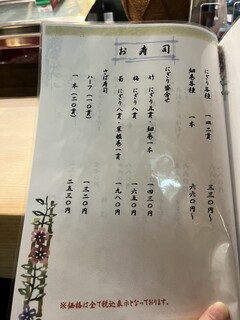 お寿司
にぎり各種 一個二貫 三三〇円〜
細巻各種 一本 六六〇円〜
にぎり盛合せ
竹 にぎり五貫・細巻一本 一四三〇円
梅 にぎり八貫 一六五〇円
菊 にぎり八貫・軍艦巻一貫 一九八〇円
さば寿司
ハーフ（一〇貫） 一三二〇円
一本（二〇貫） 二五三〇円
※価格は全て税込表示となっております。